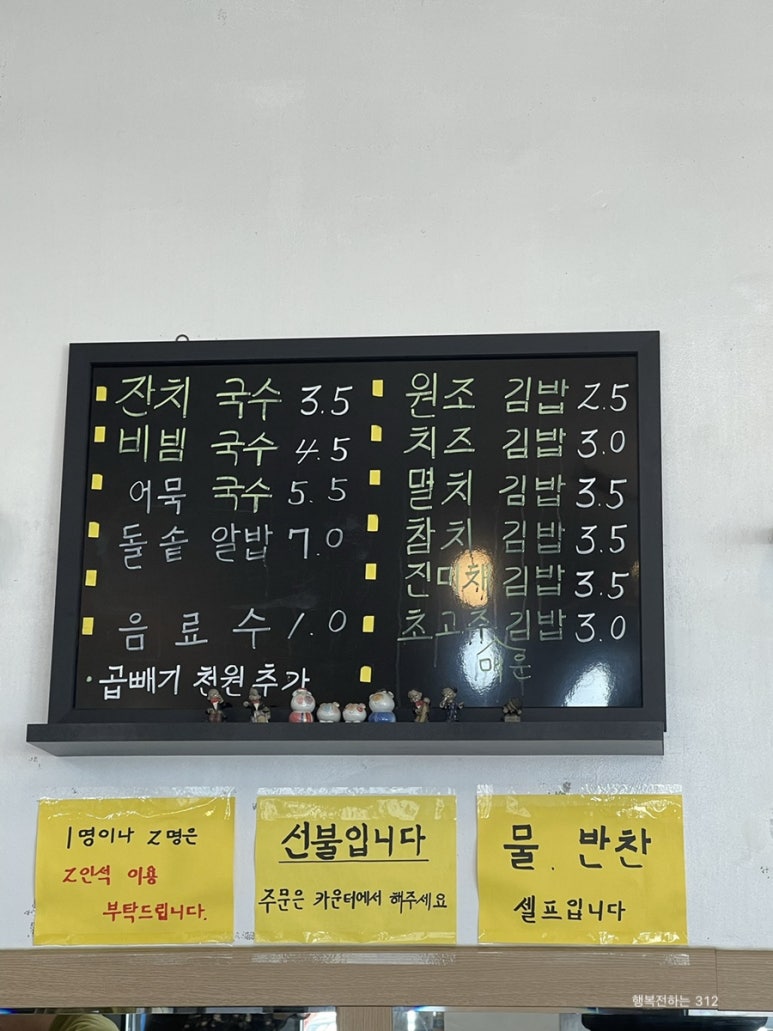 잔치 국수 3.5
비빔 국수 4.5
어묵 국수 5.5
돌솥 알밥 7.0
음료수 1.0
· 곱빼기 천원 추가
원조 김밥 2.5
치즈 김밥 3.0
멸치 김밥 3.5
참치 김밥 3.5
진미채 김밥 3.5
초고추 김밥 3.0
매운
1명이나 2명은
2인석 이용
부탁드립니다.
선불입니다
주문은 카운터에서 해주세요
물. 반찬
셀프입니다
행복전하는 312